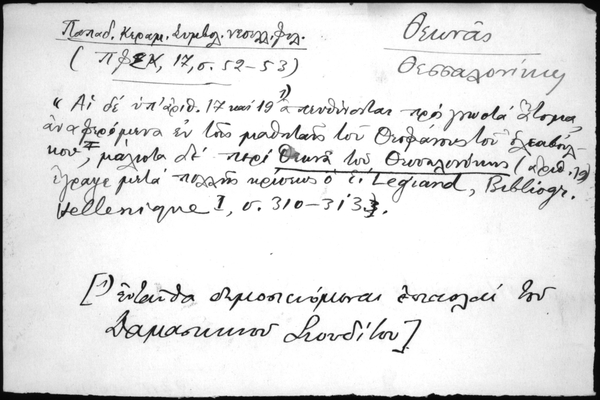 Παπαδ. Κεραμ. Συμβολ. νεοελλ. φιλ.
Θεωνᾶς
(ΠΦΣΚ, 17, σ. 52-53)
Θεσσαλονίκης
« Αἱ δέ ὑπ' ἀριθ. 17 καί 19 1) ἀπευθύνονται πρός γνωστά ἄτομα,
ἀναφερόμενα ἐν τοῖς μαθηταῖς τοῦ Θεοφάνους τοῦ Ἐλεαβούλ-
κου, μάλιστα δέ περί Θεωνᾶ τοῦ Θεσσαλονίκης (ἀριθ. 19)
ἔγραψε μετά πολλῆς κρίσεως ὁ É. Legrand, Bibliogr.
Hellenique I, σ. 310-313.
[1) ἐνταῦθα δημοσιευόμεναι ἐπιστολαί τοῦ
Δαμασκηνοῦ Στουδίτου]